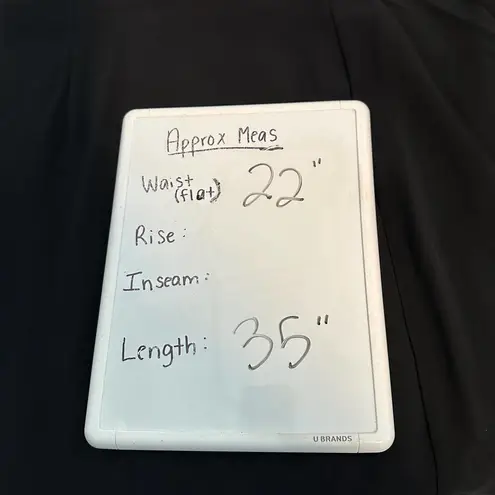 Approx Meas
Waist (flat) 22"
Rise:
Inseam:
Length: 35"
U BRANDS